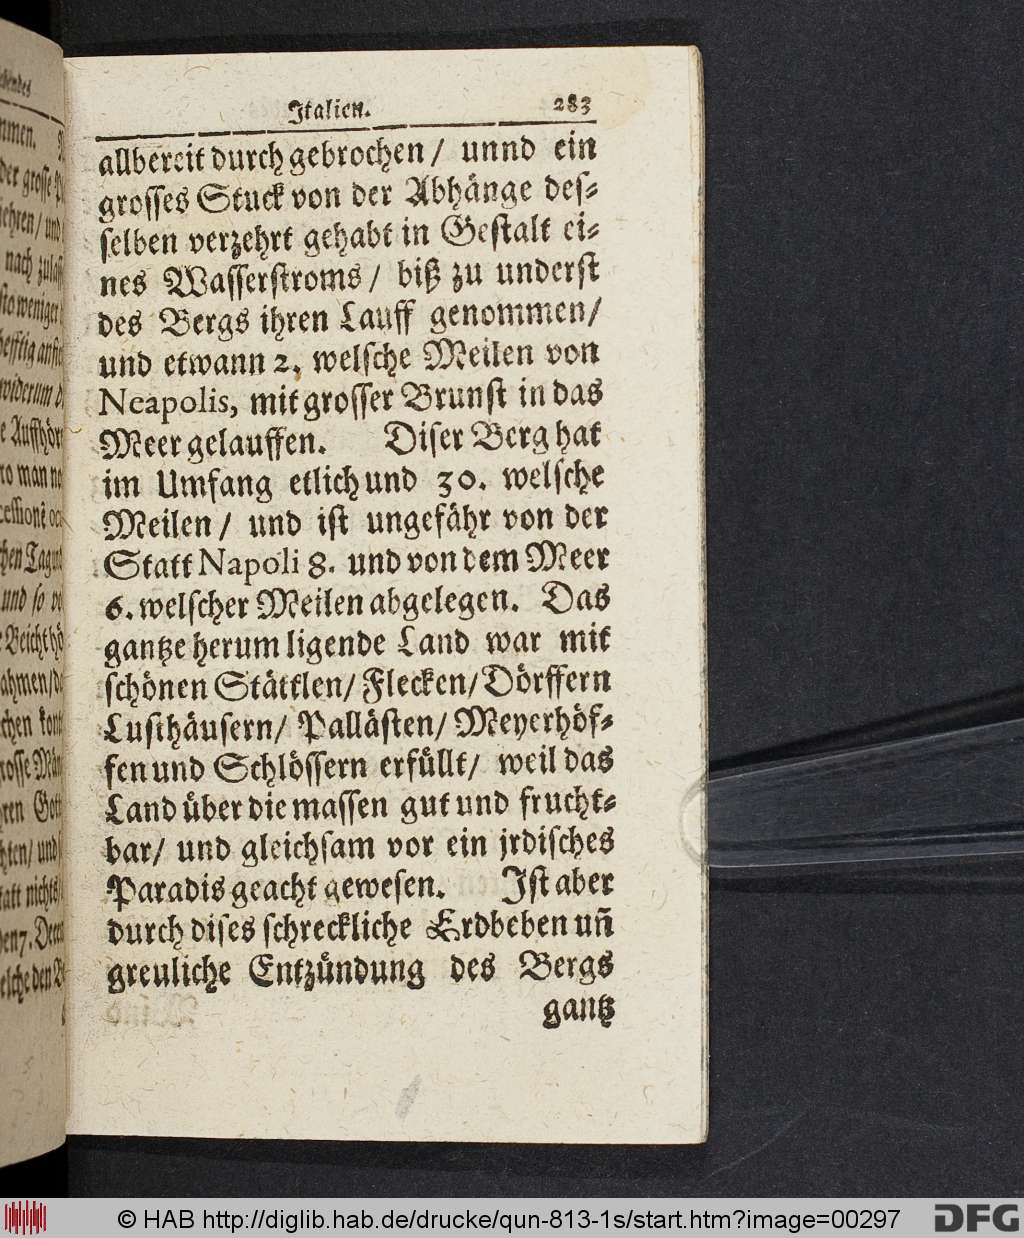 Italien. 283
allbereit durchgebrochen / unnd ein
grosses Stuck von der Abhänge des-
selben verzehrt gehabt in Gestalt ei-
nes Wasserstroms / biß zu underst
des Bergs ihren Lauff genommen /
und etwann 2. welsche Meilen von
Neapolis, mit grosser Brunst in das
Meer gelauffen. Diser Berg hat
im Umfang etlich und 30. welsche
Meilen / und ist ungefähr von der
Statt Napoli 8. und von dem Meer
6. welscher Meilen abgelegen. Das
gantze herum ligende Land war mit
schönen Stättlen / Flecken / Dörffern
Lusthäusern / Pallästen / Meyerhöf-
fen und Schlössern erfüllt / weil das
Land über die massen gut und frucht-
bar / und gleichsam vor ein jrdisches
Paradis geacht gewesen. Ist aber
durch dises schreckliche Erdbeben uñ
greuliche Entzündung des Bergs
gantz
der grosse
und
nach
weniger
Auffhör
man
Tag
und so
Beicht
kont
grosse
und
statt nichts
7. Dece
den
© HAB http://diglib.hab.de/drucke/qun-813-1s/start.htm?image=00297
DFG